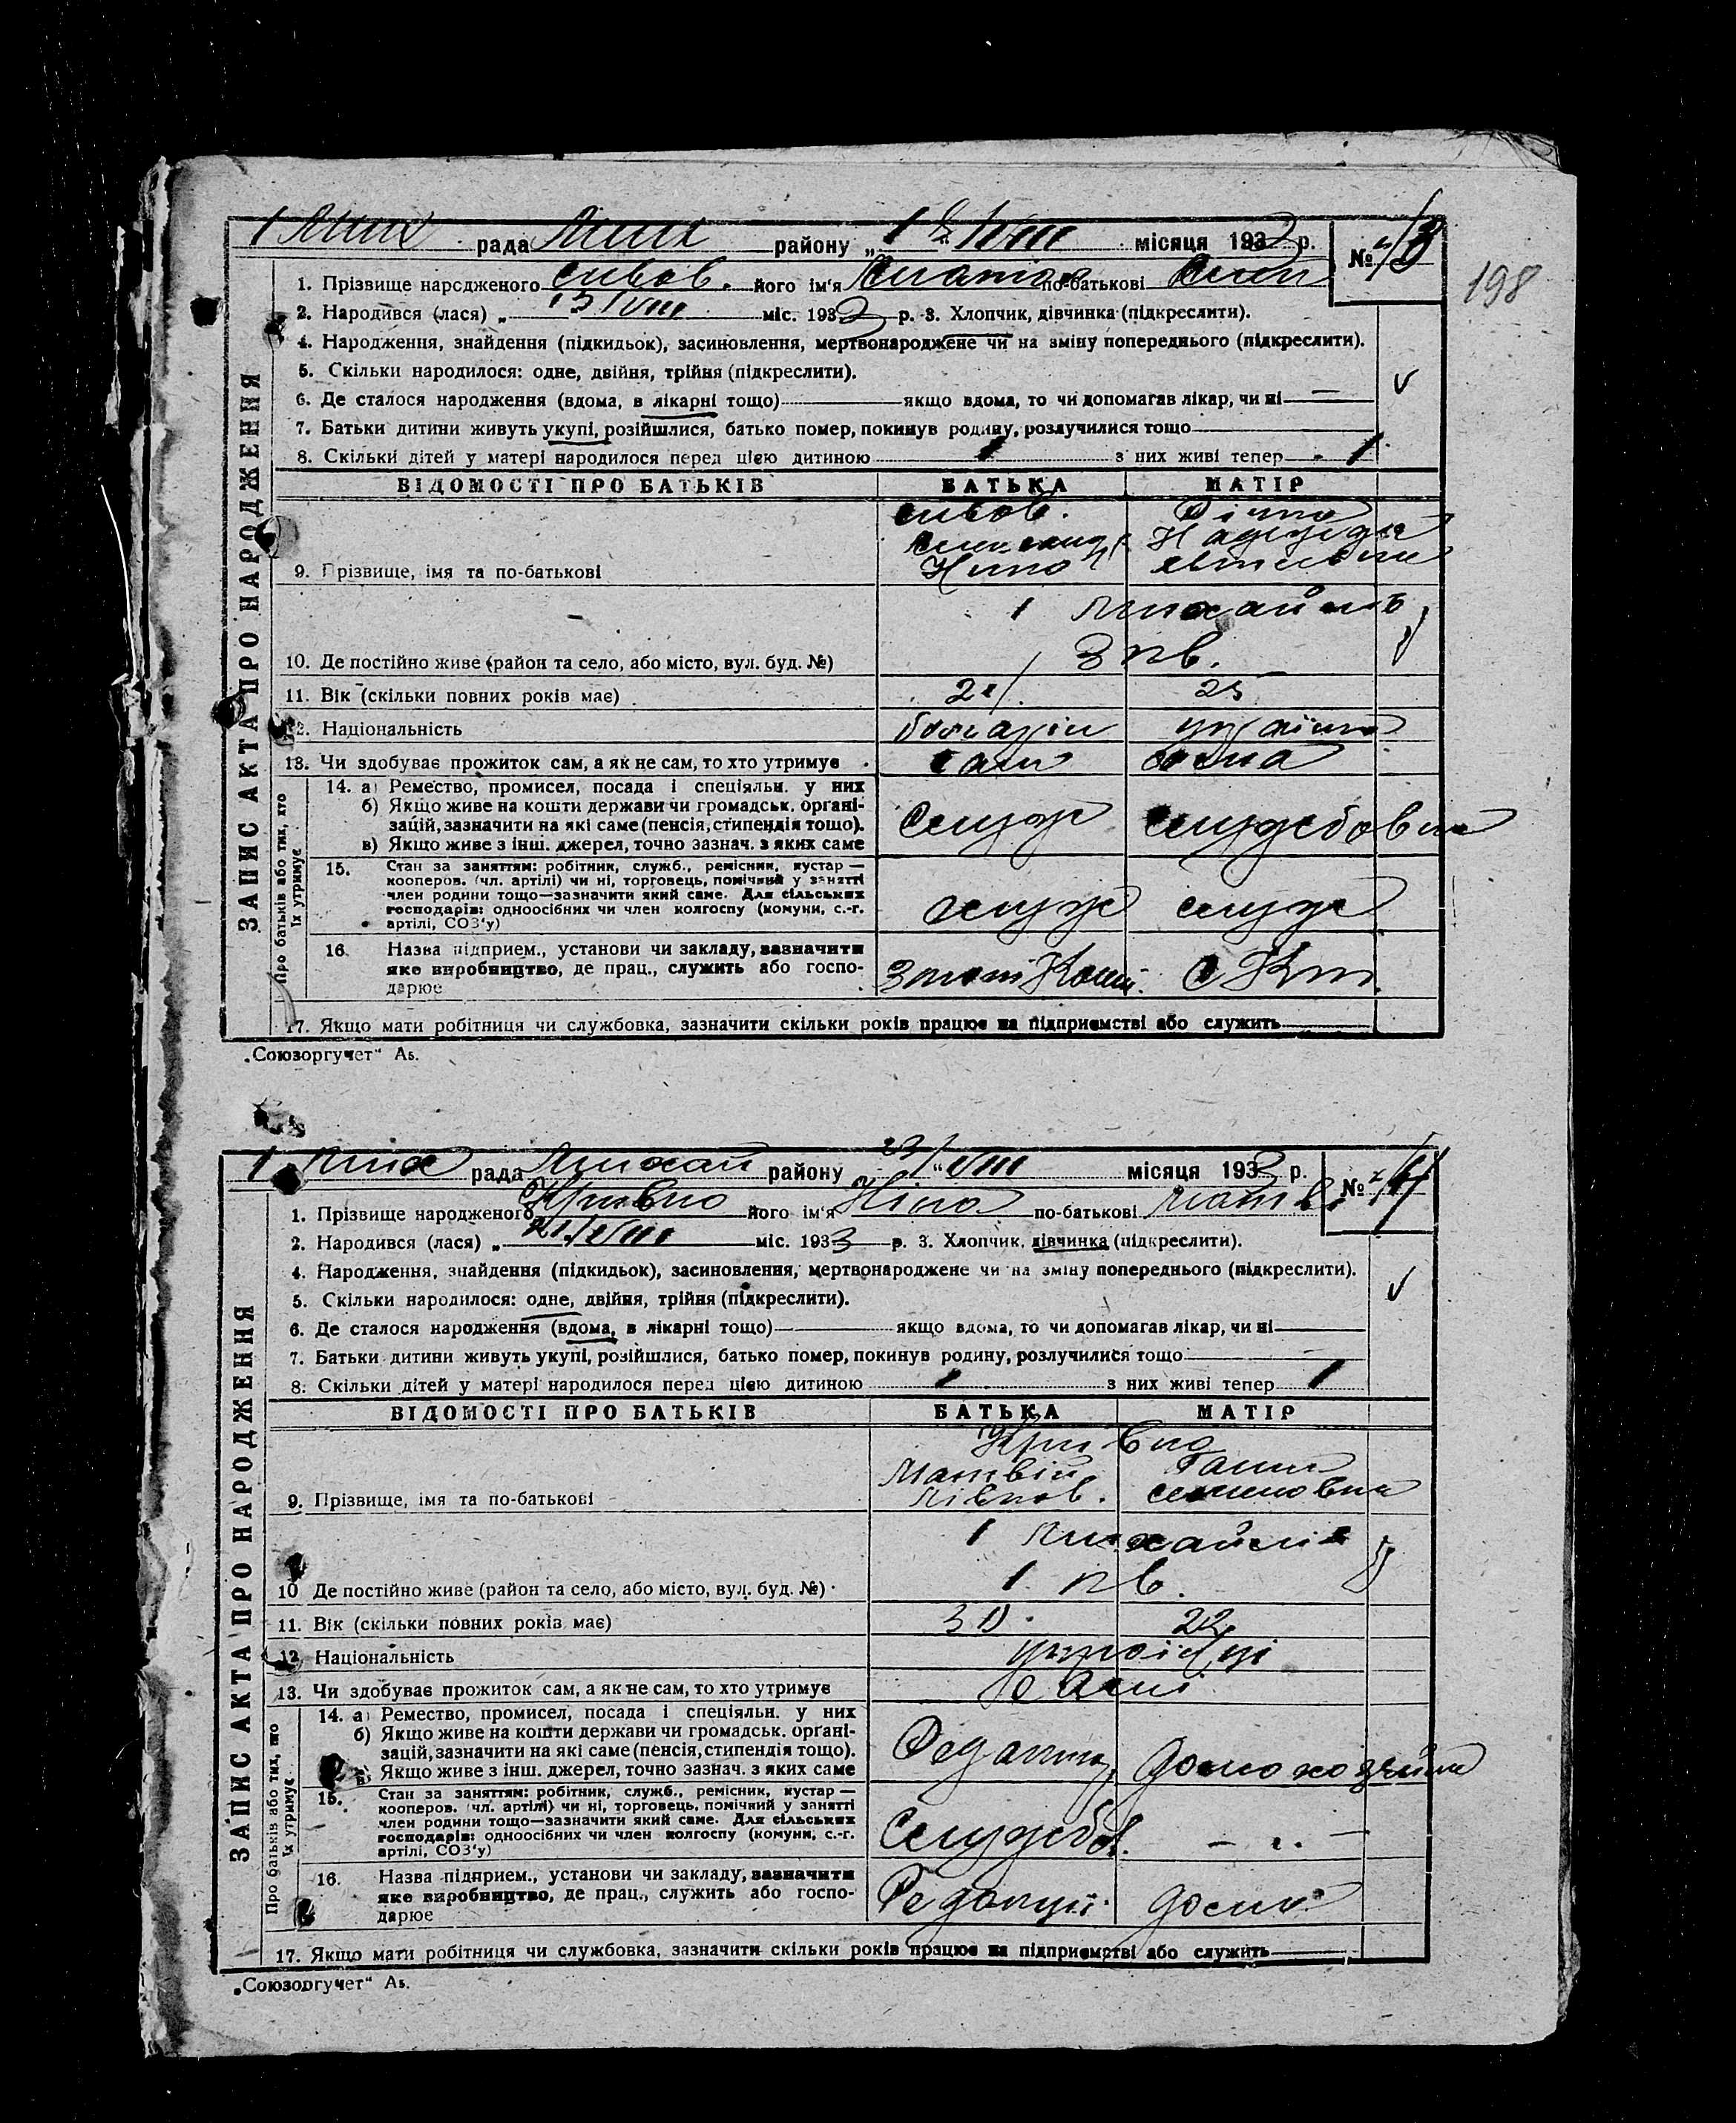 рада району „ VIII місяця 193 р. №
198
1. Прізвище народженого його ім'я по-батькові
2. Народився (лася) „ VIII міс. 193 р. 3. Хлопчик, дівчинка (підкреслити).
4. Народження, знайдення (підкидьок), засиновлення, мертвонароджене чи на зміну попереднього (підкреслити).
5. Скільки народилося: одне, двійня, трійня (підкреслити).
6. Де сталося народження (вдома, в лікарні тощо) якщо вдома, то чи допомагав лікар, чи ні
7. Батьки дитини живуть укупі, розійшлися, батько помер, покинув родину, розлучилися тощо
8. Скільки дітей у матері народилося перед цією дитиною 1 з них живі тепер 1
ЗАПИС АКТА ПРО НАРОДЖЕННЯ
ВІДОМОСТІ ПРО БАТЬКІВ БАТЬКА МАТІР
9. Прізвище, імя та по-батькові
1 Михайлів
10. Де постійно живе (район та село, або місто, вул. буд. №) 3 пв.
11. Вік (скільки повних років має) 25
12. Національність
13. Чи здобуває прожиток сам, а як не сам, то хто утримує сам сама
Про батьків або тих, хто їх утримує
14. а) Ремество, промисел, посада і спеціяльн. у них
б) Якщо живе на кошти держави чи громадськ. органі-
зацій, зазначити на які саме (пенсія, стипендія тощо). Служ службовка
в) Якщо живе з інш. джерел, точно зазнач. з яких саме
15. Стан за заняттям: робітник, служб., ремісник, кустар —
кооперов. (чл. артілі) чи ні, торговець, помічний у занятті
член родини тощо—зазначити який саме. Для сільських
господарів: одноосібних чи член колгоспу (комуни, с.-г. служ служ
артілі, СОЗ'у)
16. Назва підприєм., установи чи закладу, зазначити
яке виробництво, де прац., служить або госпо-
дарює
17. Якщо мати робітниця чи службовка, зазначити скільки років працює на підприємстві або служить
„Союзоргучет" Аб.
1 рада Михай району 23/VIII місяця 1933 р. №
1. Прізвище народженого його ім'я Ніна по-батькові Матв
2. Народився (лася) „ 21/VIII міс. 1933 р. 3. Хлопчик, дівчинка (підкреслити).
4. Народження, знайдення (підкидьок), засиновлення, мертвонароджене чи на зміну попереднього (підкреслити).
5. Скільки народилося: одне, двійня, трійня (підкреслити).
6. Де сталося народження (вдома, в лікарні тощо) якщо вдома, то чи допомагав лікар, чи ні
7. Батьки дитини живуть укупі, розійшлися, батько помер, покинув родину, розлучилися тощо
8. Скільки дітей у матері народилося перед цією дитиною 1 з них живі тепер 1
ЗАПИС АКТА ПРО НАРОДЖЕННЯ
ВІДОМОСТІ ПРО БАТЬКІВ БАТЬКА МАТІР
Матвій Ганна
9. Прізвище, імя та по-батькові Семеновна
1 Михайлів
10. Де постійно живе (район та село, або місто, вул. буд. №) 1 пв.
11. Вік (скільки повних років має) 30 22
12. Національність українці
13. Чи здобуває прожиток сам, а як не сам, то хто утримує самі
Про батьків або тих, що їх утримує
14. а) Ремество, промисел, посада і спеціяльн. у них
б) Якщо живе на кошти держави чи громадськ. органі-
зацій, зазначити на які саме (пенсія, стипендія тощо). Редактор домохозяйка
в) Якщо живе з інш. джерел, точно зазнач. з яких саме
15. Стан за заняттям: робітник, служб., ремісник, кустар —
кооперов. чл. артілі) чи ні, торговець, помічний у занятті
член родини тощо—зазначити який саме. Для сільських
господарів: одноосібних чи член колгоспу (комуни, с.-г. Службов. — „ —
артілі, СОЗ'у)
16. Назва підприєм., установи чи закладу, зазначити
яке виробництво, де прац., служить або госпо- Редакції дома
дарює
17. Якщо мати робітниця чи службовка, зазначити скільки років працює на підприємстві або служить
„Союзоргучет" Аб.